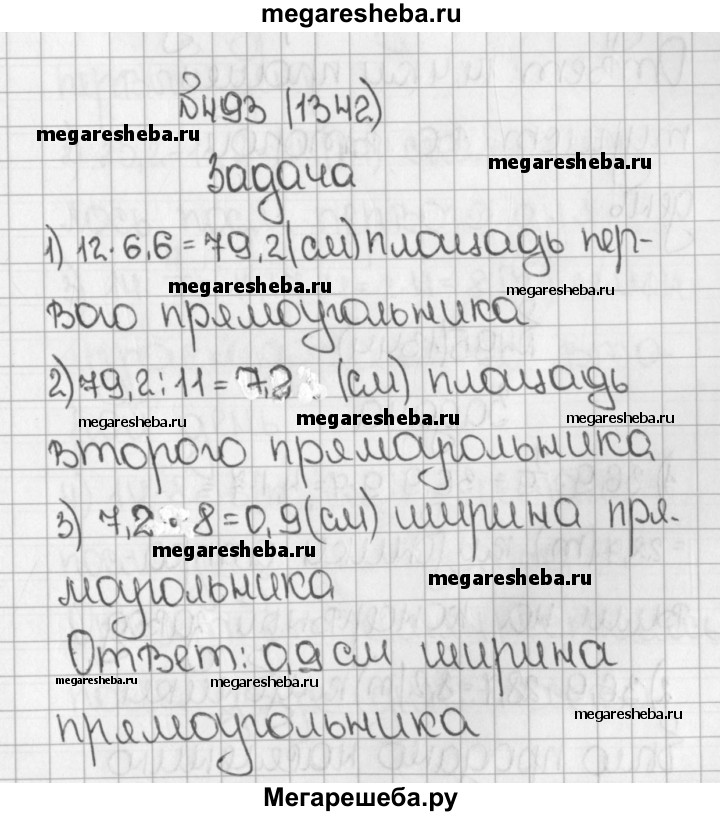 megaresheba.ru
№493 (1342)
megaresheba.ru
megaresheba.ru
Задача
1) 12·6,6=79,2(см) площадь пер-
megaresheba.ru
megaresheba.ru
вого прямоугольника
2) 79,2:11=7,2 (см) площадь
megaresheba.ru
megaresheba.ru
megaresheba.ru
второго прямоугольника
3) 7,2:8=0,9(см) ширина пря-
megaresheba.ru
моугольника
megaresheba.ru
Ответ: 0,9 см ширина
megaresheba.ru
megaresheba.ru
прямоугольника
megaresheba.ru
Мегарешеба.ру